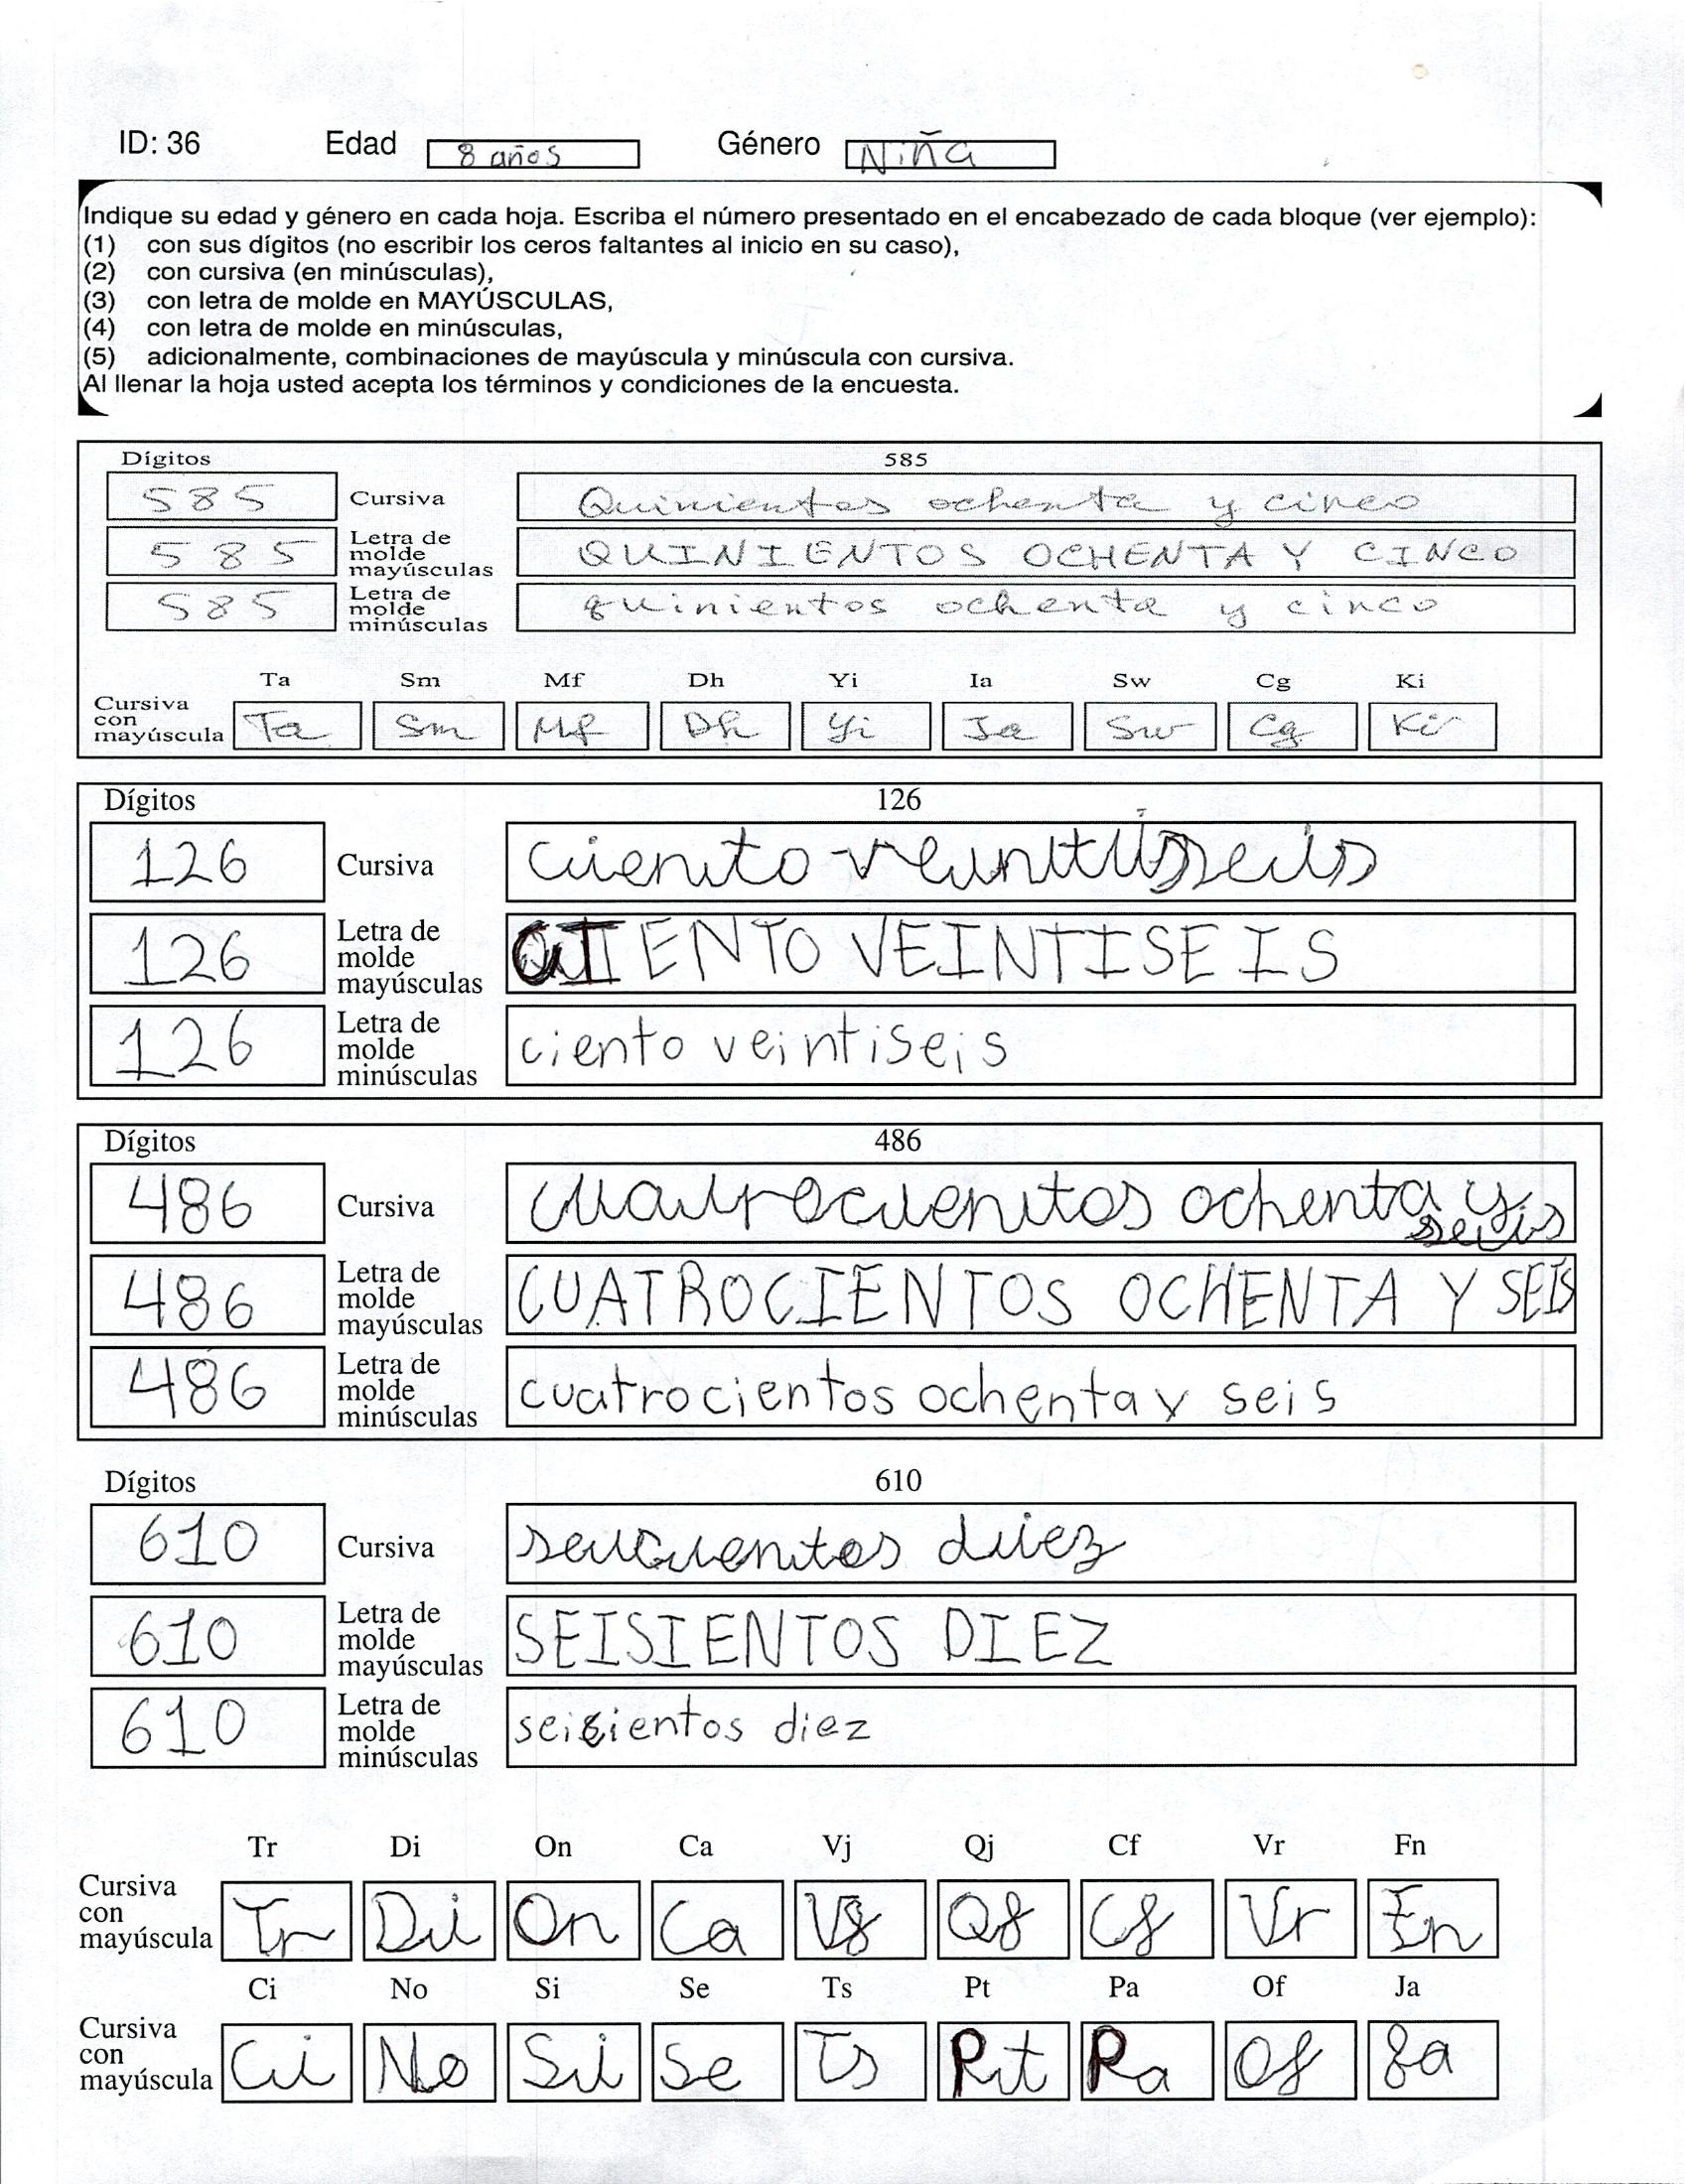 ID: 36 Edad 8 años Género Niña
Indique su edad y género en cada hoja. Escriba el número presentado en el encabezado de cada bloque (ver ejemplo):
(1) con sus dígitos (no escribir los ceros faltantes al inicio en su caso),
(2) con cursiva (en minúsculas),
(3) con letra de molde en MAYÚSCULAS,
(4) con letra de molde en minúsculas,
(5) adicionalmente, combinaciones de mayúscula y minúscula con cursiva.
Al llenar la hoja usted acepta los términos y condiciones de la encuesta.
Dígitos 585
585 Cursiva Quinientos ochenta y cinco
585 Letra de molde mayúsculas QUINIENTOS OCHENTA Y CINCO
585 Letra de molde minúsculas quinientos ochenta y cinco
Ta Sm Mf Dh Yi Ia Sw Cg Ki
Cursiva con mayúscula Ta Sm Mf Dh Yi Ia Sw Cg Ki
Dígitos 126
126 Cursiva ciento veintiseis
126 Letra de molde mayúsculas CIENTO VEINTISEIS
126 Letra de molde minúsculas ciento veintiseis
Dígitos 486
486 Cursiva cuatrocientos ochenta y seis
486 Letra de molde mayúsculas CUATROCIENTOS OCHENTA Y SEIS
486 Letra de molde minúsculas cuatrocientos ochenta y seis
Dígitos 610
610 Cursiva seicientos diez
610 Letra de molde mayúsculas SEISIENTOS DIEZ
610 Letra de molde minúsculas seicientos diez
Tr Di On Ca Vj Qj Cf Vr Fn
Cursiva con mayúscula Tr Di On Ca Vj Qj Cf Vr Fn
Ci No Si Se Ts Pt Pa Of Ja
Cursiva con mayúscula Ci No Si Se Ts Pt Pa Of Ja